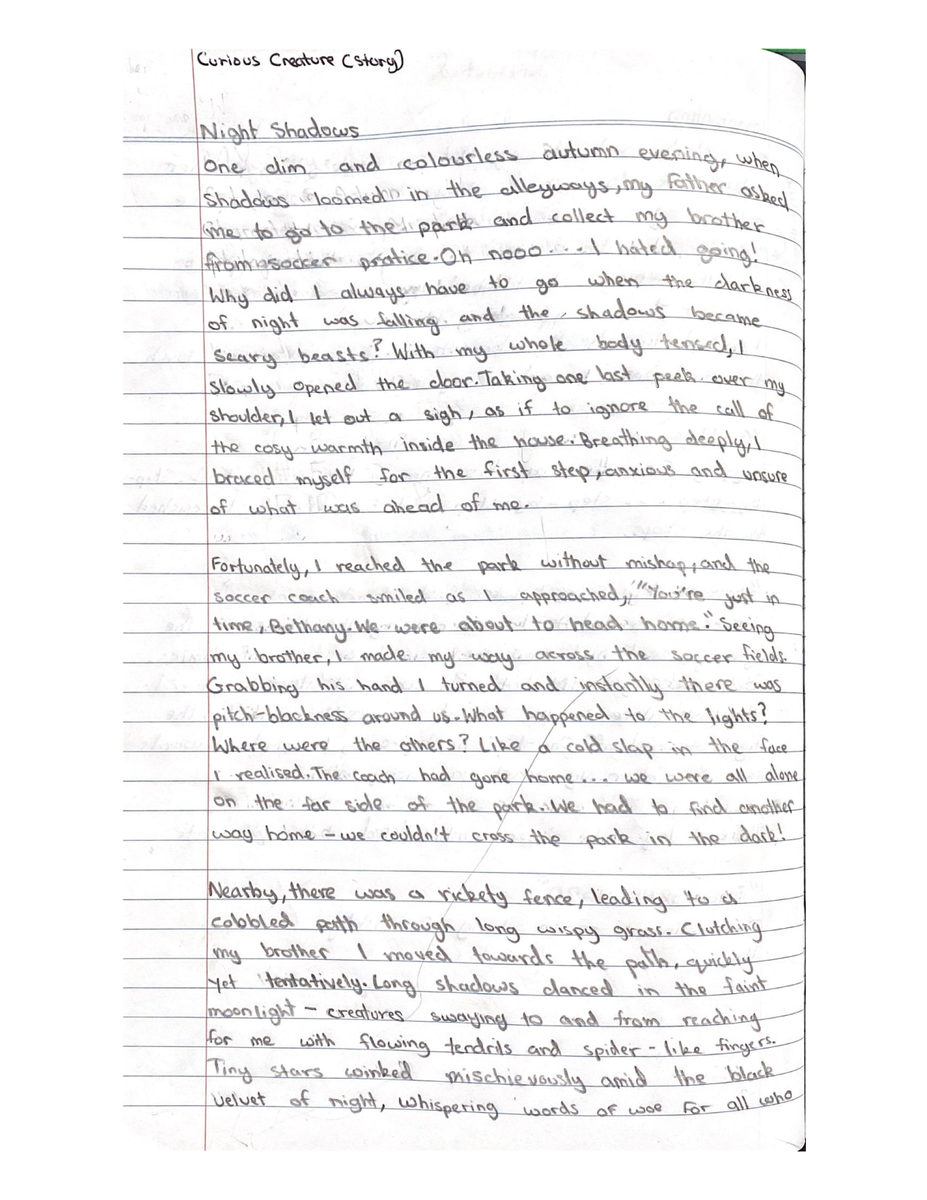 Curious Creature (story)
Night Shadows
One dim and colourless autumn evening, when
shadows loomed in the alleyways, my father asked
me to go to the park and collect my brother
from soccer pratice. Oh nooo... I hated going!
Why did I always have to go when the darkness
of night was falling and the shadows became
scary beasts? With my whole body tensed, I
slowly opened the door. Taking one last peek over my
shoulder, I let out a sigh, as if to ignore the call of
the cosy warmth inside the house. Breathing deeply, I
braced myself for the first step, anxious and unsure
of what was ahead of me.
Fortunately, I reached the park without mishap, and the
soccer coach smiled as I approached, "You're just in
time, Bethany. We were about to head home." Seeing
my brother, I made my way across the soccer fields.
Grabbing his hand I turned and instantly there was
pitch-blackness around us. What happened to the lights?
Where were the others? Like a cold slap in the face
I realised. The coach had gone home... we were all alone
on the far side of the park. We had to find another
way home - we couldn't cross the park in the dark!
Nearby, there was a rickety fence, leading to a
cobbled path through long wispy grass. Clutching
my brother I moved towards the path, quickly
yet tentatively. Long shadows danced in the faint
moonlight - creatures swaying to and from reaching
for me with flowing tendrils and spider-like fingers.
Tiny stars winked mischievously amid the black
velvet of night, whispering words of woe for all who